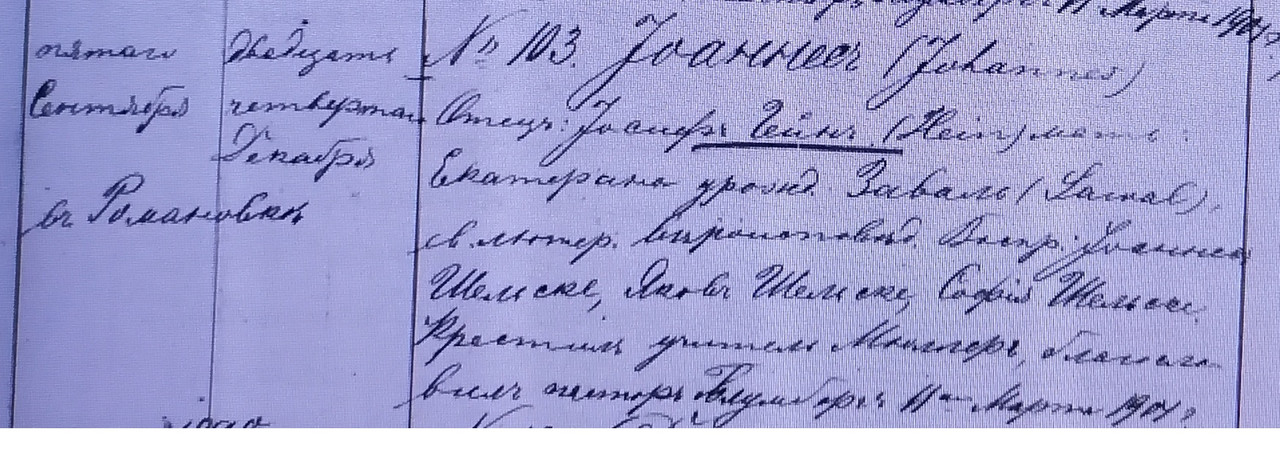 11 Марта 1901 г.
пятаго
Сентября
въ Романовкѣ
двадцать
четвертаго
Декабря
№ 103. Іоаннесъ (Johannes)
Отецъ: Іосифъ Гейнъ (Hein) мать:
Екатерина урожд. Заваль (Sawal),
ев. лютер. вѣроисповѣд. Воспр: Іоаннес
Шельске, Яковъ Шельске, Софія Шельске.
Крестилъ учитель Мюллеръ, благосло-
вилъ пасторъ Блумбергъ 11го Марта 1901 г.